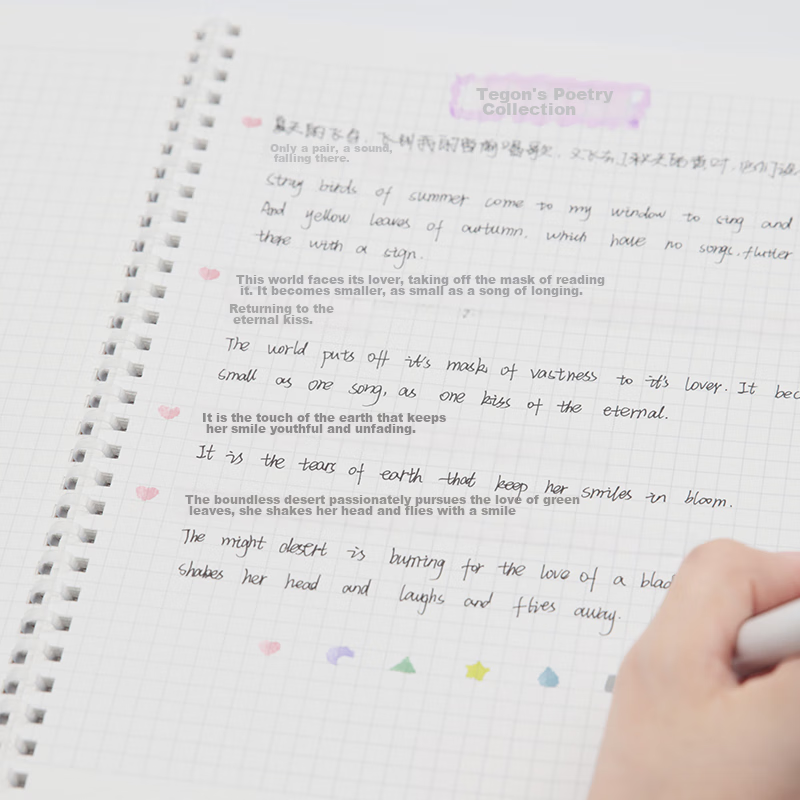 Tegon's Poetry
Collection
Only a pair, a sound,
falling there.
Stray birds of summer come to my window to sing and
And yellow leaves of autumn. which have no songs. flutter
there with a sign.
This world faces its lover, taking off the mask of reading
it. It becomes smaller, as small as a song of longing.
Returning to the
eternal kiss.
The world puts off it's mask of vastness to it's lover. It bec
small as one song, as one kiss of the eternal.
It is the touch of the earth that keeps
her smile youthful and unfading.
It is the tears of earth that keep her smiles in bloom.
The boundless desert passionately pursues the love of green
leaves, she shakes her head and flies with a smile
The might desert is burning for the love of a blad
shakes her head and laughs and flies away.